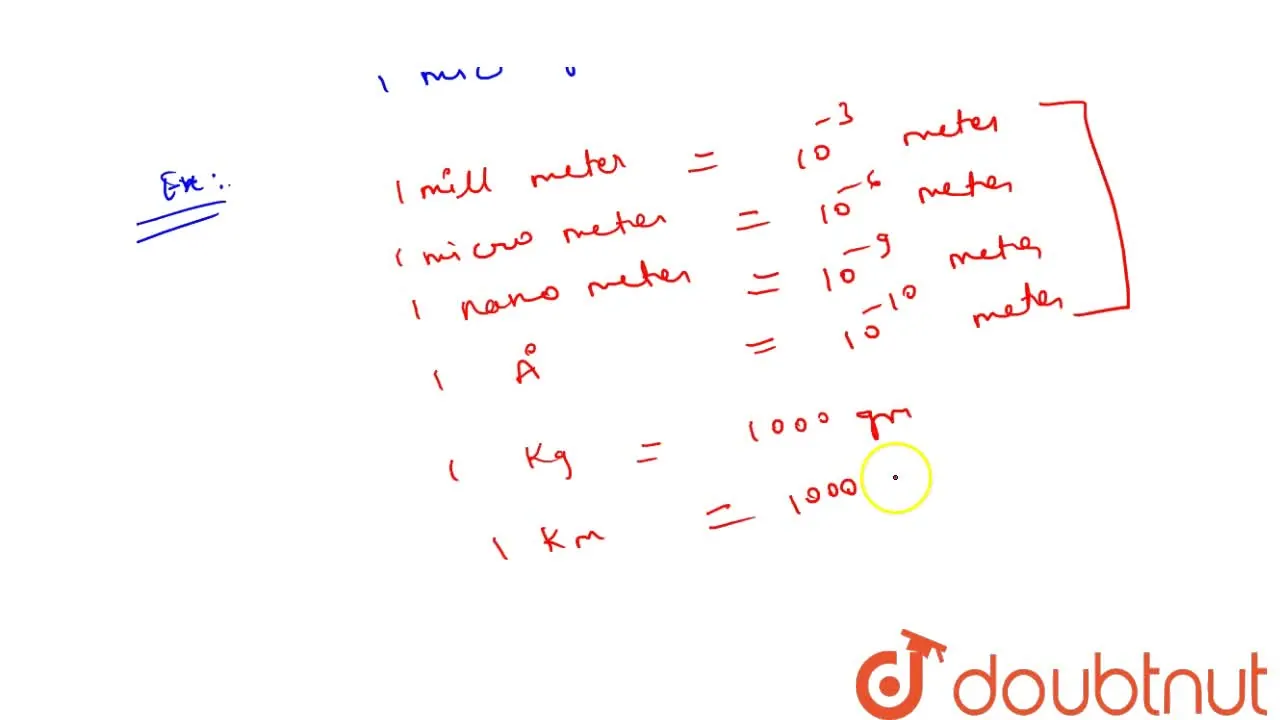 1 mic
Ex:.
1 milli meter = 10⁻³ meter
1 micro meter = 10⁻⁶ meter
1 nano meter = 10⁻⁹ meter
1 Å = 10⁻¹⁰ meter
1 Kg = 1000 gm
1 Km = 1000
doubtnut